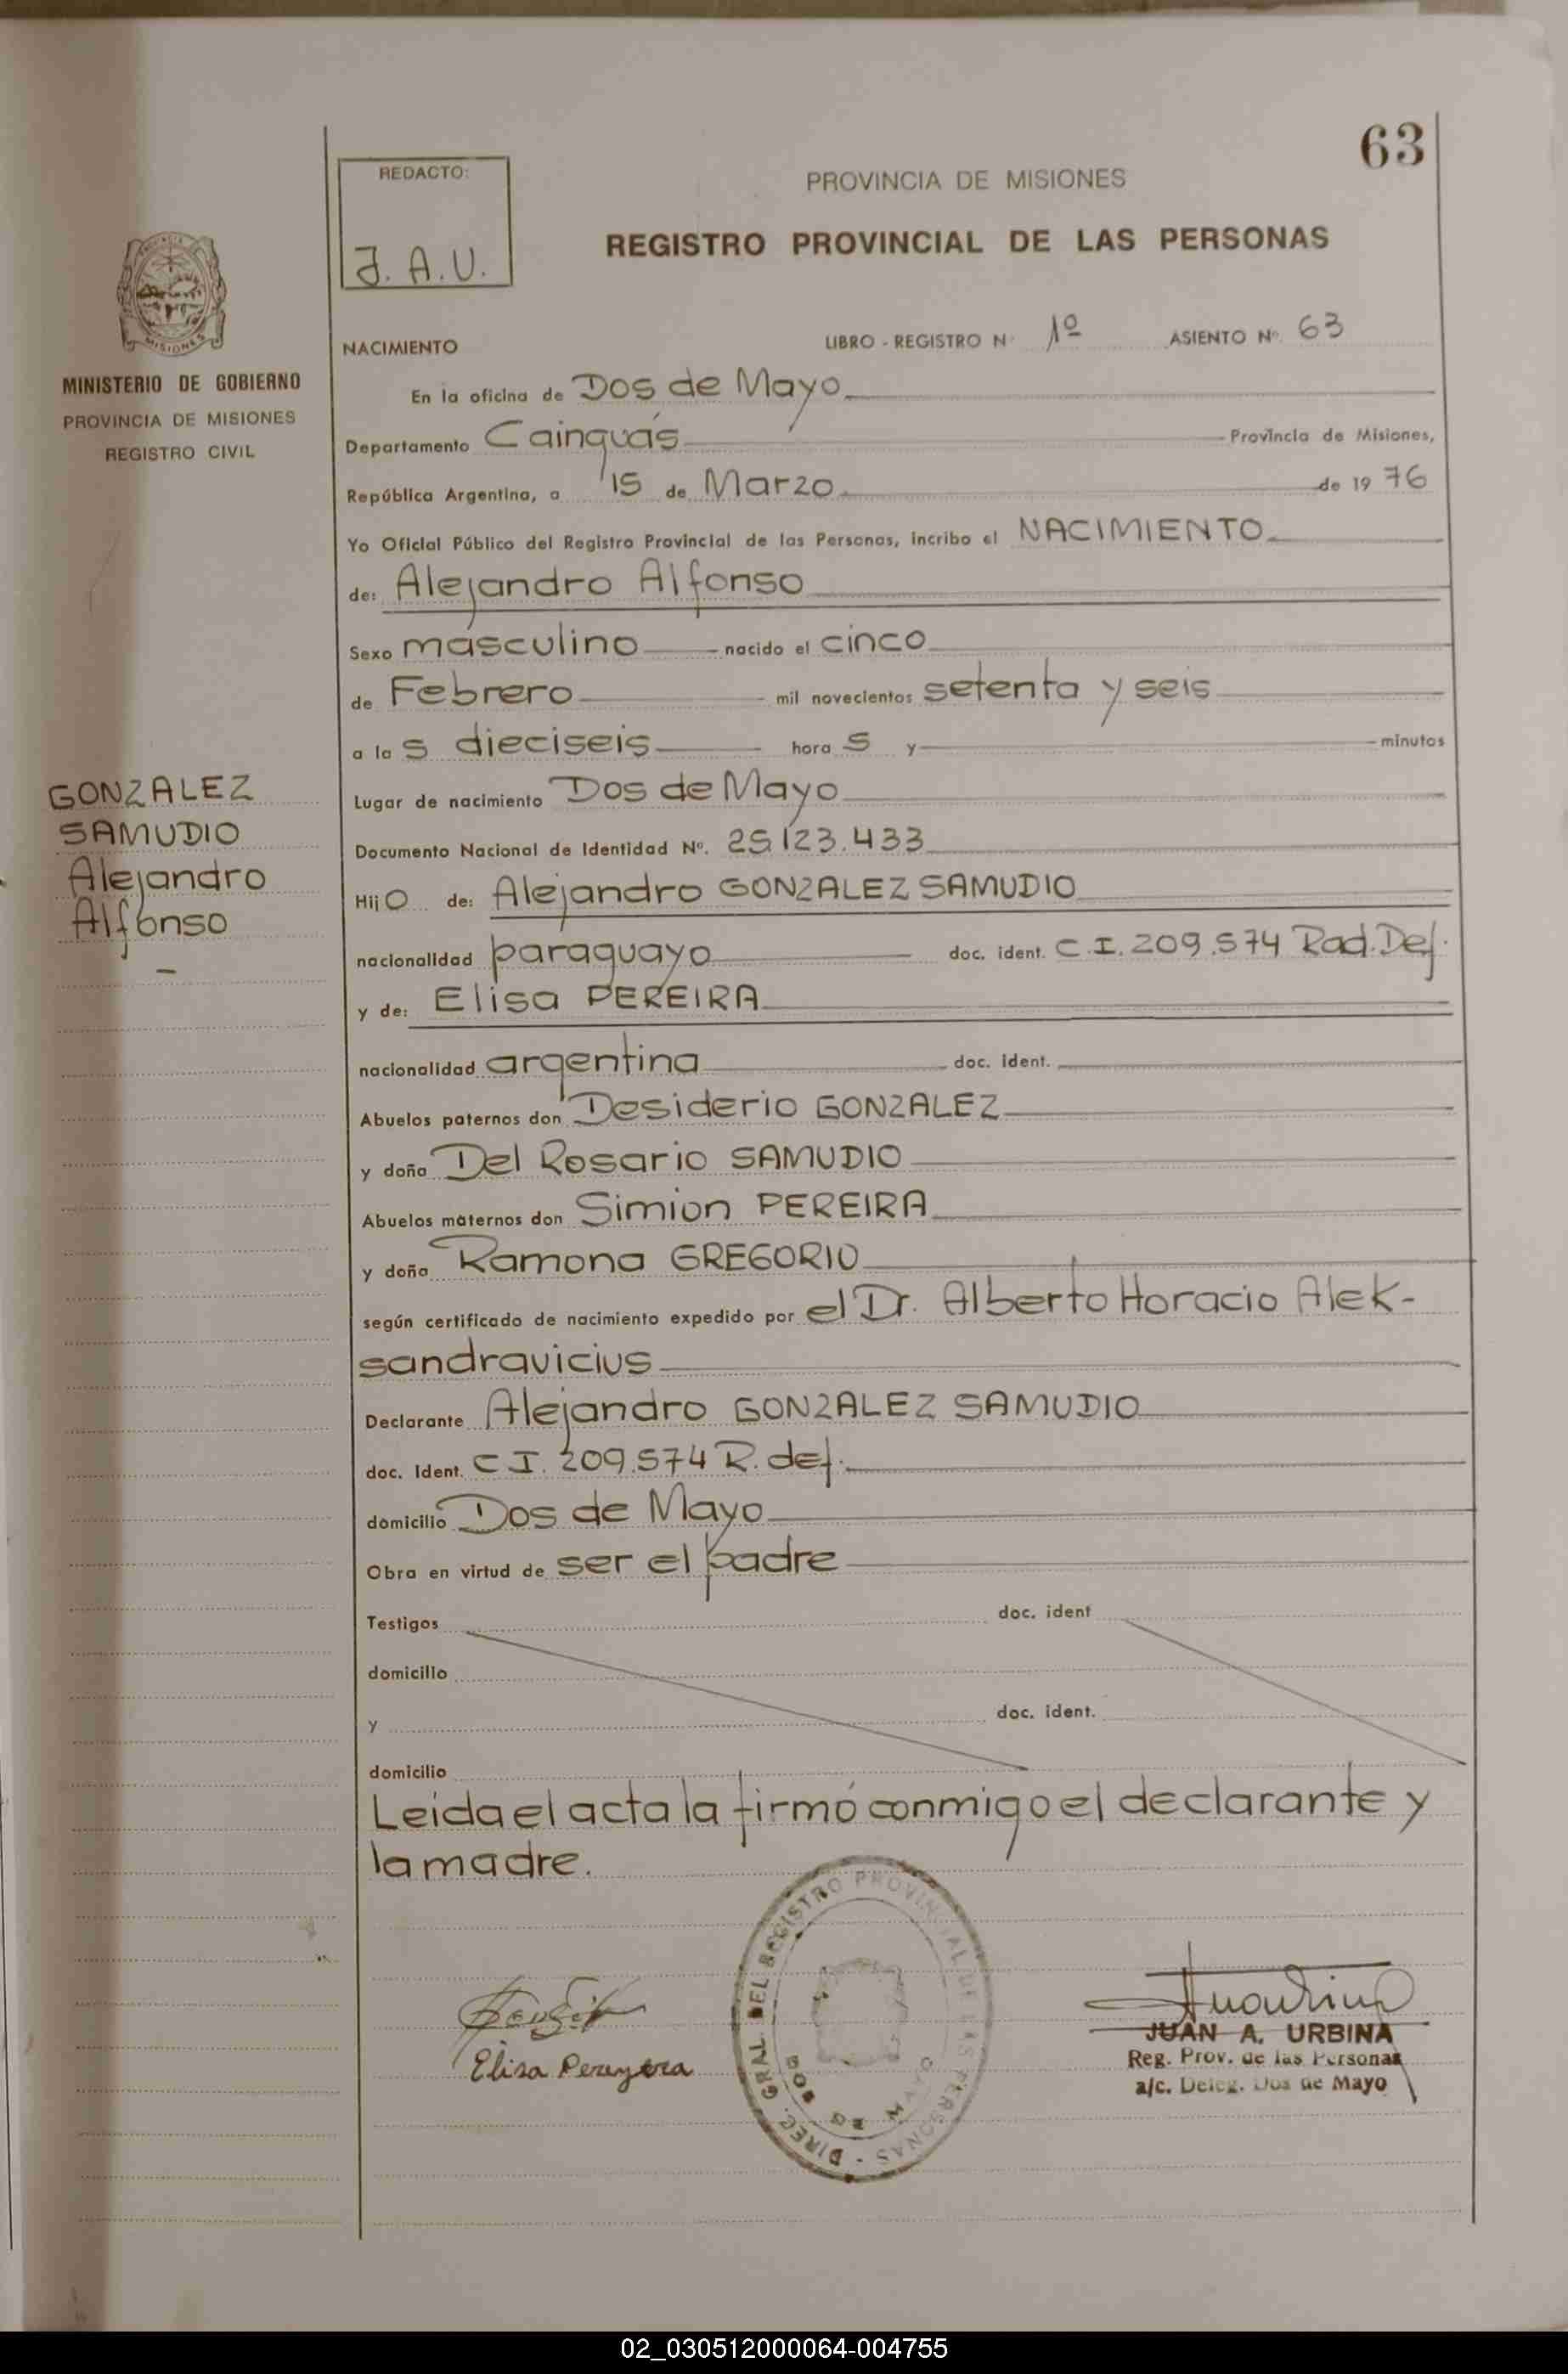 63
REDACTO:
J. A. U.
PROVINCIA DE MISIONES
REGISTRO PROVINCIAL DE LAS PERSONAS
MISIONES
MINISTERIO DE GOBIERNO
PROVINCIA DE MISIONES
REGISTRO CIVIL
NACIMIENTO LIBRO - REGISTRO Nº 1º ASIENTO Nº. 63
En la oficina de Dos de Mayo
Departamento Cainguás Provincia de Misiones,
República Argentina, a 15 de Marzo de 19 76
Yo Oficial Público del Registro Provincial de las Personas, incribo el NACIMIENTO
de: Alejandro Alfonso
Sexo masculino nacido el cinco
de Febrero mil novecientos setenta y seis
a la s dieciseis hora s y minutos
Lugar de nacimiento Dos de Mayo
Documento Nacional de Identidad Nº. 25.123.433
GONZALEZ
SAMUDIO
Alejandro
Alfonso
Hij o de: Alejandro GONZALEZ SAMUDIO
nacionalidad paraguayo doc. ident. C.I. 209.574 Rad. Def.
y de: Elisa PEREIRA
nacionalidad argentina doc. ident.
Abuelos paternos don Desiderio GONZALEZ
y doña Del Rosario SAMUDIO
Abuelos maternos don Simion PEREIRA
y doña Ramona GREGORIO
según certificado de nacimiento expedido por el Dr. Alberto Horacio Alek-
sandravicius
Declarante Alejandro GONZALEZ SAMUDIO
doc. Ident. C I. 209.574 R. def.
domicilio Dos de Mayo
Obra en virtud de ser el padre
Testigos doc. ident
domicilio
y doc. ident.
domicilio
Leida el acta la firmó conmigo el declarante y
la madre.
DIREC. GRAL. DEL REGISTRO PROVINCIAL DE LAS PERSONAS
DOS DE MAYO
Elisa Pereyra
JUAN A. URBINA
Reg. Prov. de las Personas
a/c. Deleg. Dos de Mayo
02_030512000064-004755